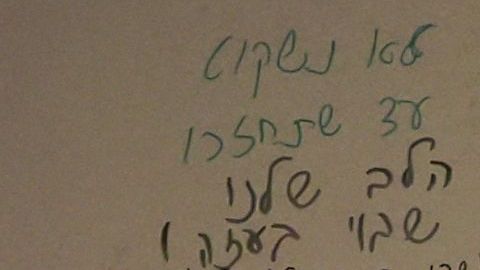 לא נשקוט
עד שתחזרו
הלב שלנו
שבוי בעזה !